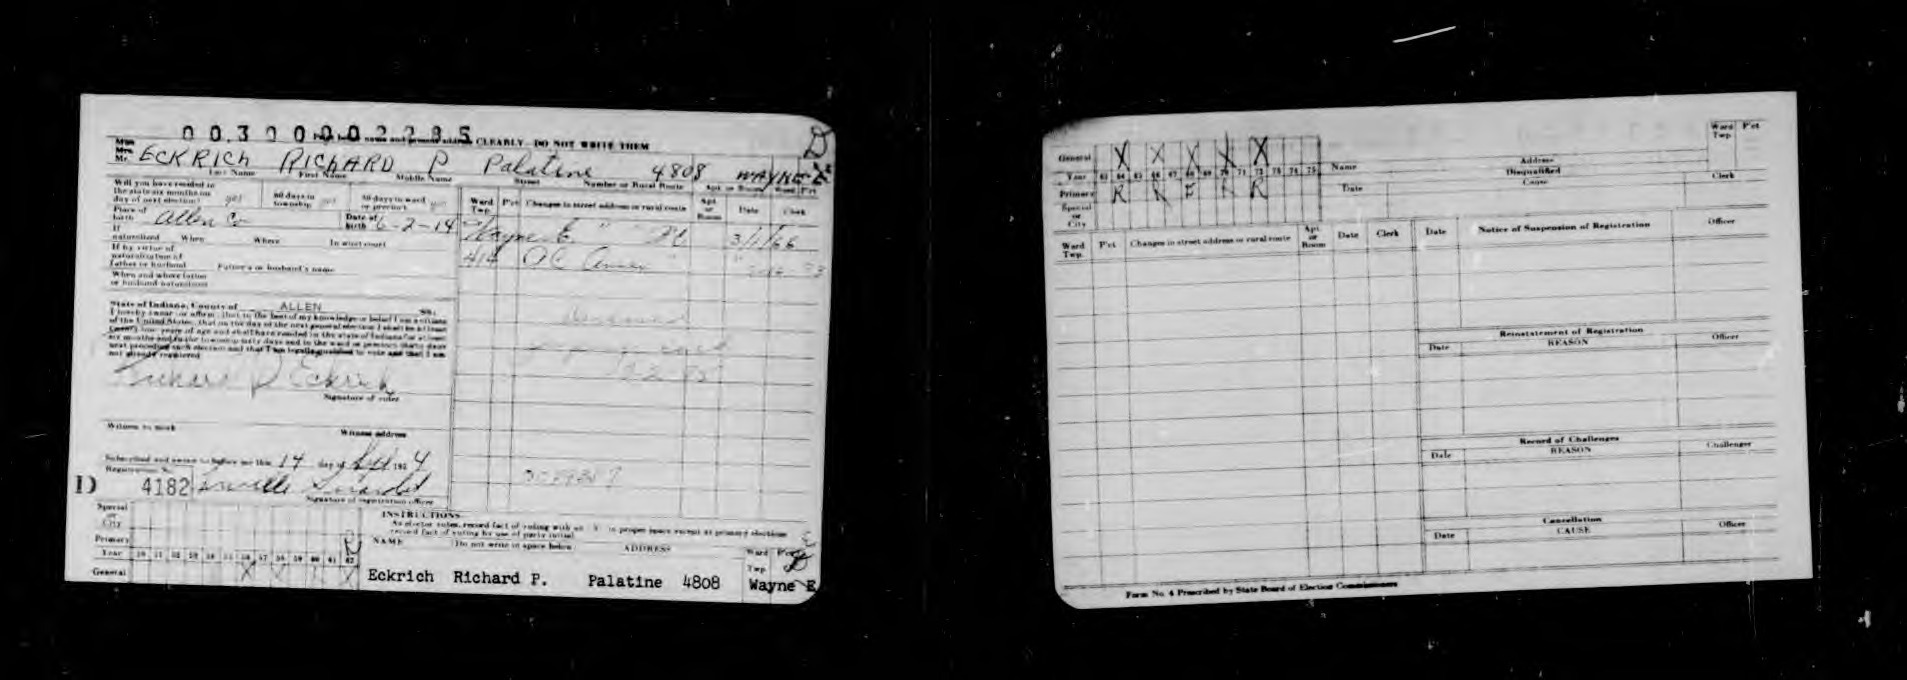 00300002285
Print last name and present address CLEARLY - DO NOT WRITE THEM
Miss
Mrs.
Mr. ECKRICH RICHARD P Palatine 4808 WAYNE E
Last Name First Name Middle Name Street Number or Rural Route Apt. or Room Ward P'ct
Will you have resided in
the state six months on
day of next election? yes
60 days in
township yes
30 days in ward
or precinct yes
Place of
birth Allen Co
Date of
birth 6-2-14
If
naturalized When Where In what court
If by virtue of
naturalization of
father or husband Father's or husband's name
When and where father
or husband naturalized
State of Indiana, County of ALLEN SS:
I hereby swear or affirm that to the best of my knowledge or belief I am a citizen
of the United States, that on the day of the next general election I shall be at least
years of age and shall have resided in the state of Indiana for at least
six months and in the township sixty days and in the ward or precinct thirty days
next preceding such election and that I am legally qualified to vote and that I am
not already registered
Richard P Eckrich
Signature of voter
Witness to mark Witness address
Subscribed and sworn to before me this 14 day of 4
Registration No.
D 4182
Signature of registration officer
Ward
Twp. P'ct Changes in street address or rural route Apt.
or
Room Date Clerk
Wayne E " 3/1/66
414
D
Special
or
City
Primary R
Year 50 51 52 53 54 55 56 57 58 59 60 61 62
General X X X X
INSTRUCTIONS
As elector votes, record fact of voting with an X in proper space except at primary elections
record fact of voting by use of party initial
NAME Do not write in space below ADDRESS Ward P'ct
Twp.
Eckrich Richard P. Palatine 4808 Wayne E
General X X X X X
Year 63 64 65 66 67 68 69 70 71 72 73 74 75
Primary R R R
Special
or
City
Name Address Ward
Twp. P'ct
Disqualified
Date Cause Clerk
Ward
Twp. P'ct Changes in street address or rural route Apt.
or
Room Date Clerk
Date Notice of Suspension of Registration Officer
Reinstatement of Registration
Date REASON Officer
Record of Challenges
Date REASON Challenger
Cancellation
Date CAUSE Officer
Form No. 4 Prescribed by State Board of Election Commissioners